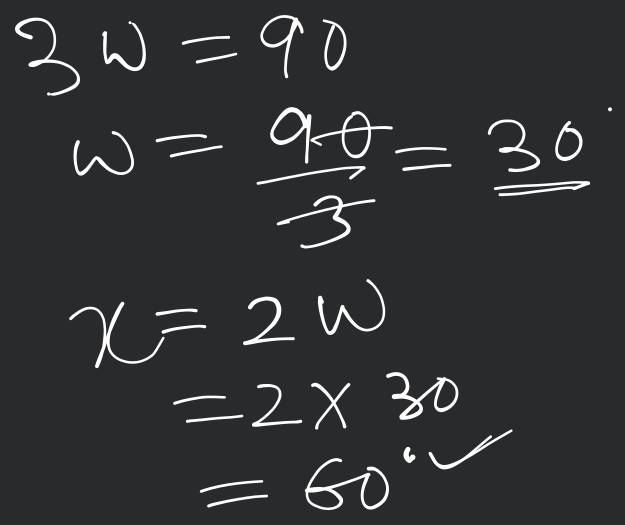 3w = 90
w = 90/3 = 30°
x = 2w
= 2 × 30
= 60° ✓